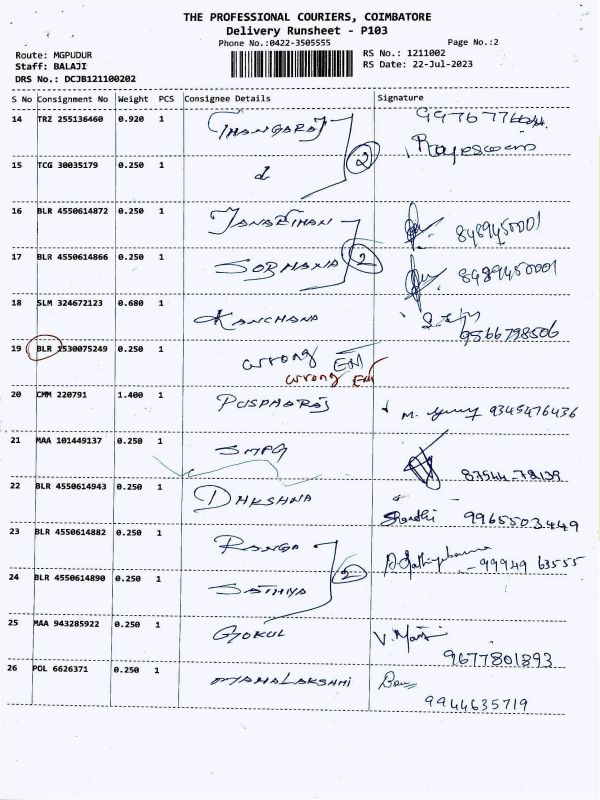 THE PROFESSIONAL COURIERS, COIMBATORE
Delivery Runsheet - P103
Phone No.:0422-3505555
Page No.:2
Route: MGPUDUR
RS No.: 1211002
Staff: BALAJI
RS Date: 22-Jul-2023
DRS No.: DCJB121100202
S No Consignment No Weight PCS Consignee Details Signature
14 TRZ 255136460 0.920 1 THANGARAJ
Rajeswari
15 TCG 30035179 0.250 1 d 2
16 BLR 4550614872 0.250 1 JANARTHAN 8489450001
17 BLR 4550614866 0.250 1 SOBHANA 2 8489450001
18 SLM 324672123 0.680 1 KANCHANA 9566798506
19 BLR 1530075249 0.250 1 wrong Ent
wrong Ent
20 CMM 220791 1.400 1 PUSPHARAJ M. 9345476436
21 MAA 101449137 0.250 1 SMPG 87544-78139
22 BLR 4550614943 0.250 1 DHKSHNA Shanthi 9965503449
23 BLR 4550614882 0.250 1 RANGA 99949 63555
24 BLR 4550614890 0.250 1 SATHIYA 2
25 MAA 943285922 0.250 1 GOKUL V. Mani
9677801893
26 POL 6626371 0.250 1 MAHALAKSHMI
9944635719